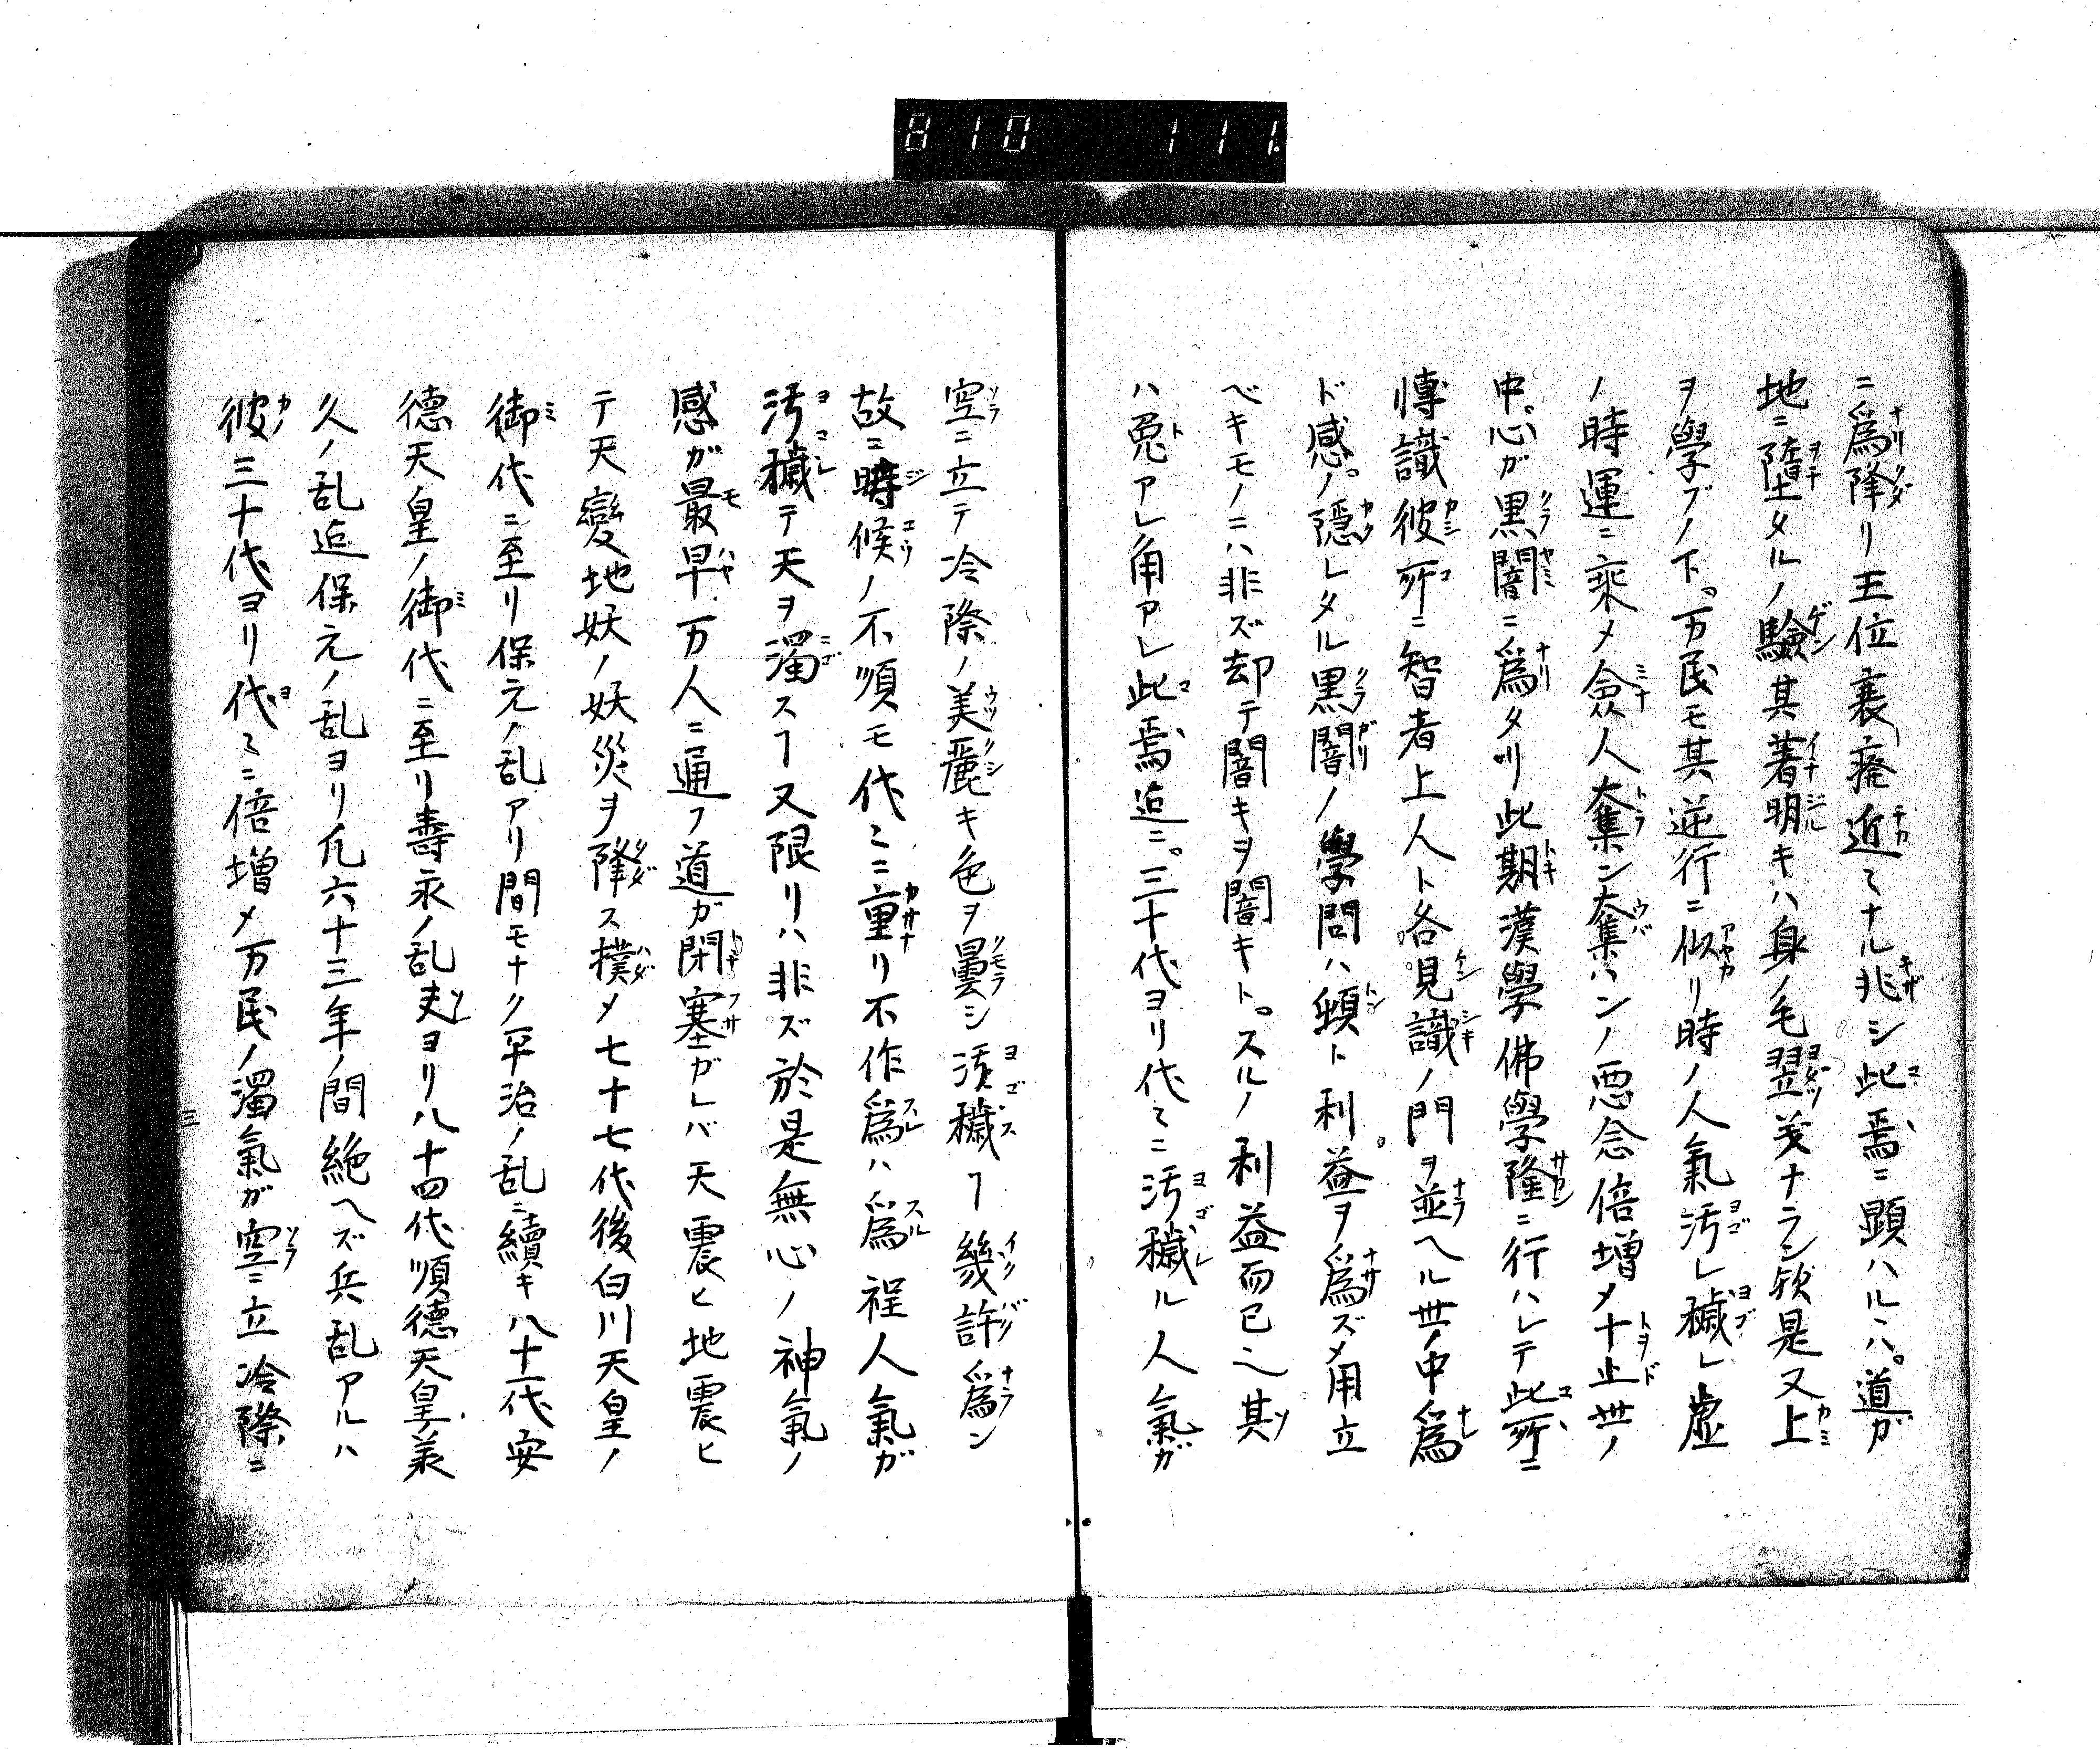 810 111.
ニ爲降リ王位衰廃近〻ナル兆シ此焉ニ顕ハルヽハ。道ガ
地ニ墮タルノ驗其著明キハ身ノ毛竪ツナラン欤是又上
ヲ學ブノ下。万民モ其逆行ニ似リ時ノ人氣汚レ穢レ虚
ノ時運ニ乗メ僉人奪ン奪ハンノ悪念倍増メ十止世ノ
中。心ガ黒闇ニ爲タリ此期漢學佛學隆ニ行ハレテ此所ニ
博識彼所ニ智者上人ト各見識ノ門ヲ並ヘル世ノ中爲
ド感ノ隠レタル黒闇ノ學問ハ頓ト利益ヲ爲ズメ用立
ベキモノニハ非ズ却テ闇キヲ闇キト。スルノ利益而已〻其
ハ兎アレ角アレ此焉迠ニ。三十代ヨリ代〻ニ汚穢ル人氣ガ
空ニ立テ冷際ノ美麗キ色ヲ曇シ汚穢ヿ幾許爲ン
故ニ時候ノ不順モ代〻ニ重リ不作爲ハ爲程人氣ガ
汚穢テ天ヲ濁スヿ又限リハ非ズ於是無心ノ神氣ノ
感ガ最早万人ニ通フ道ガ閉塞ガレバ天震ヒ地震ヒ
テ天變地妖ノ妖災ヲ降ス撲メ七十七代後白川天皇ノ
御代ニ至リ保元ノ乱アリ間モナク平治ノ乱ニ續キ八十一代安
徳天皇ノ御代ニ至リ壽永ノ乱夫ヨリ八十四代順德天皇美
久ノ乱迠保元ノ乱ヨリ凢六十三年ノ間絶ヘズ兵乱アルハ
彼三十代ヨリ代〻ニ倍増メ万民ノ濁氣ガ空ニ立冷際ニ
三